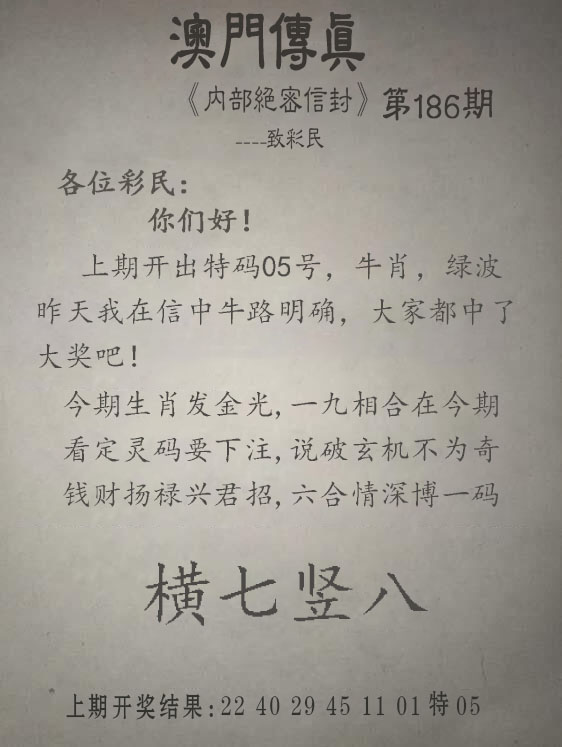 澳門傳真
《内部絕密信封》第186期
----致彩民
各位彩民：
你们好！
上期开出特码05号，牛肖，绿波
昨天我在信中牛路明确，大家都中了
大奖吧！
今期生肖发金光,一九相合在今期
看定灵码要下注,说破玄机不为奇
钱财扬禄兴君招,六合情深博一码
横七竖八
上期开奖结果:22 40 29 45 11 01特05